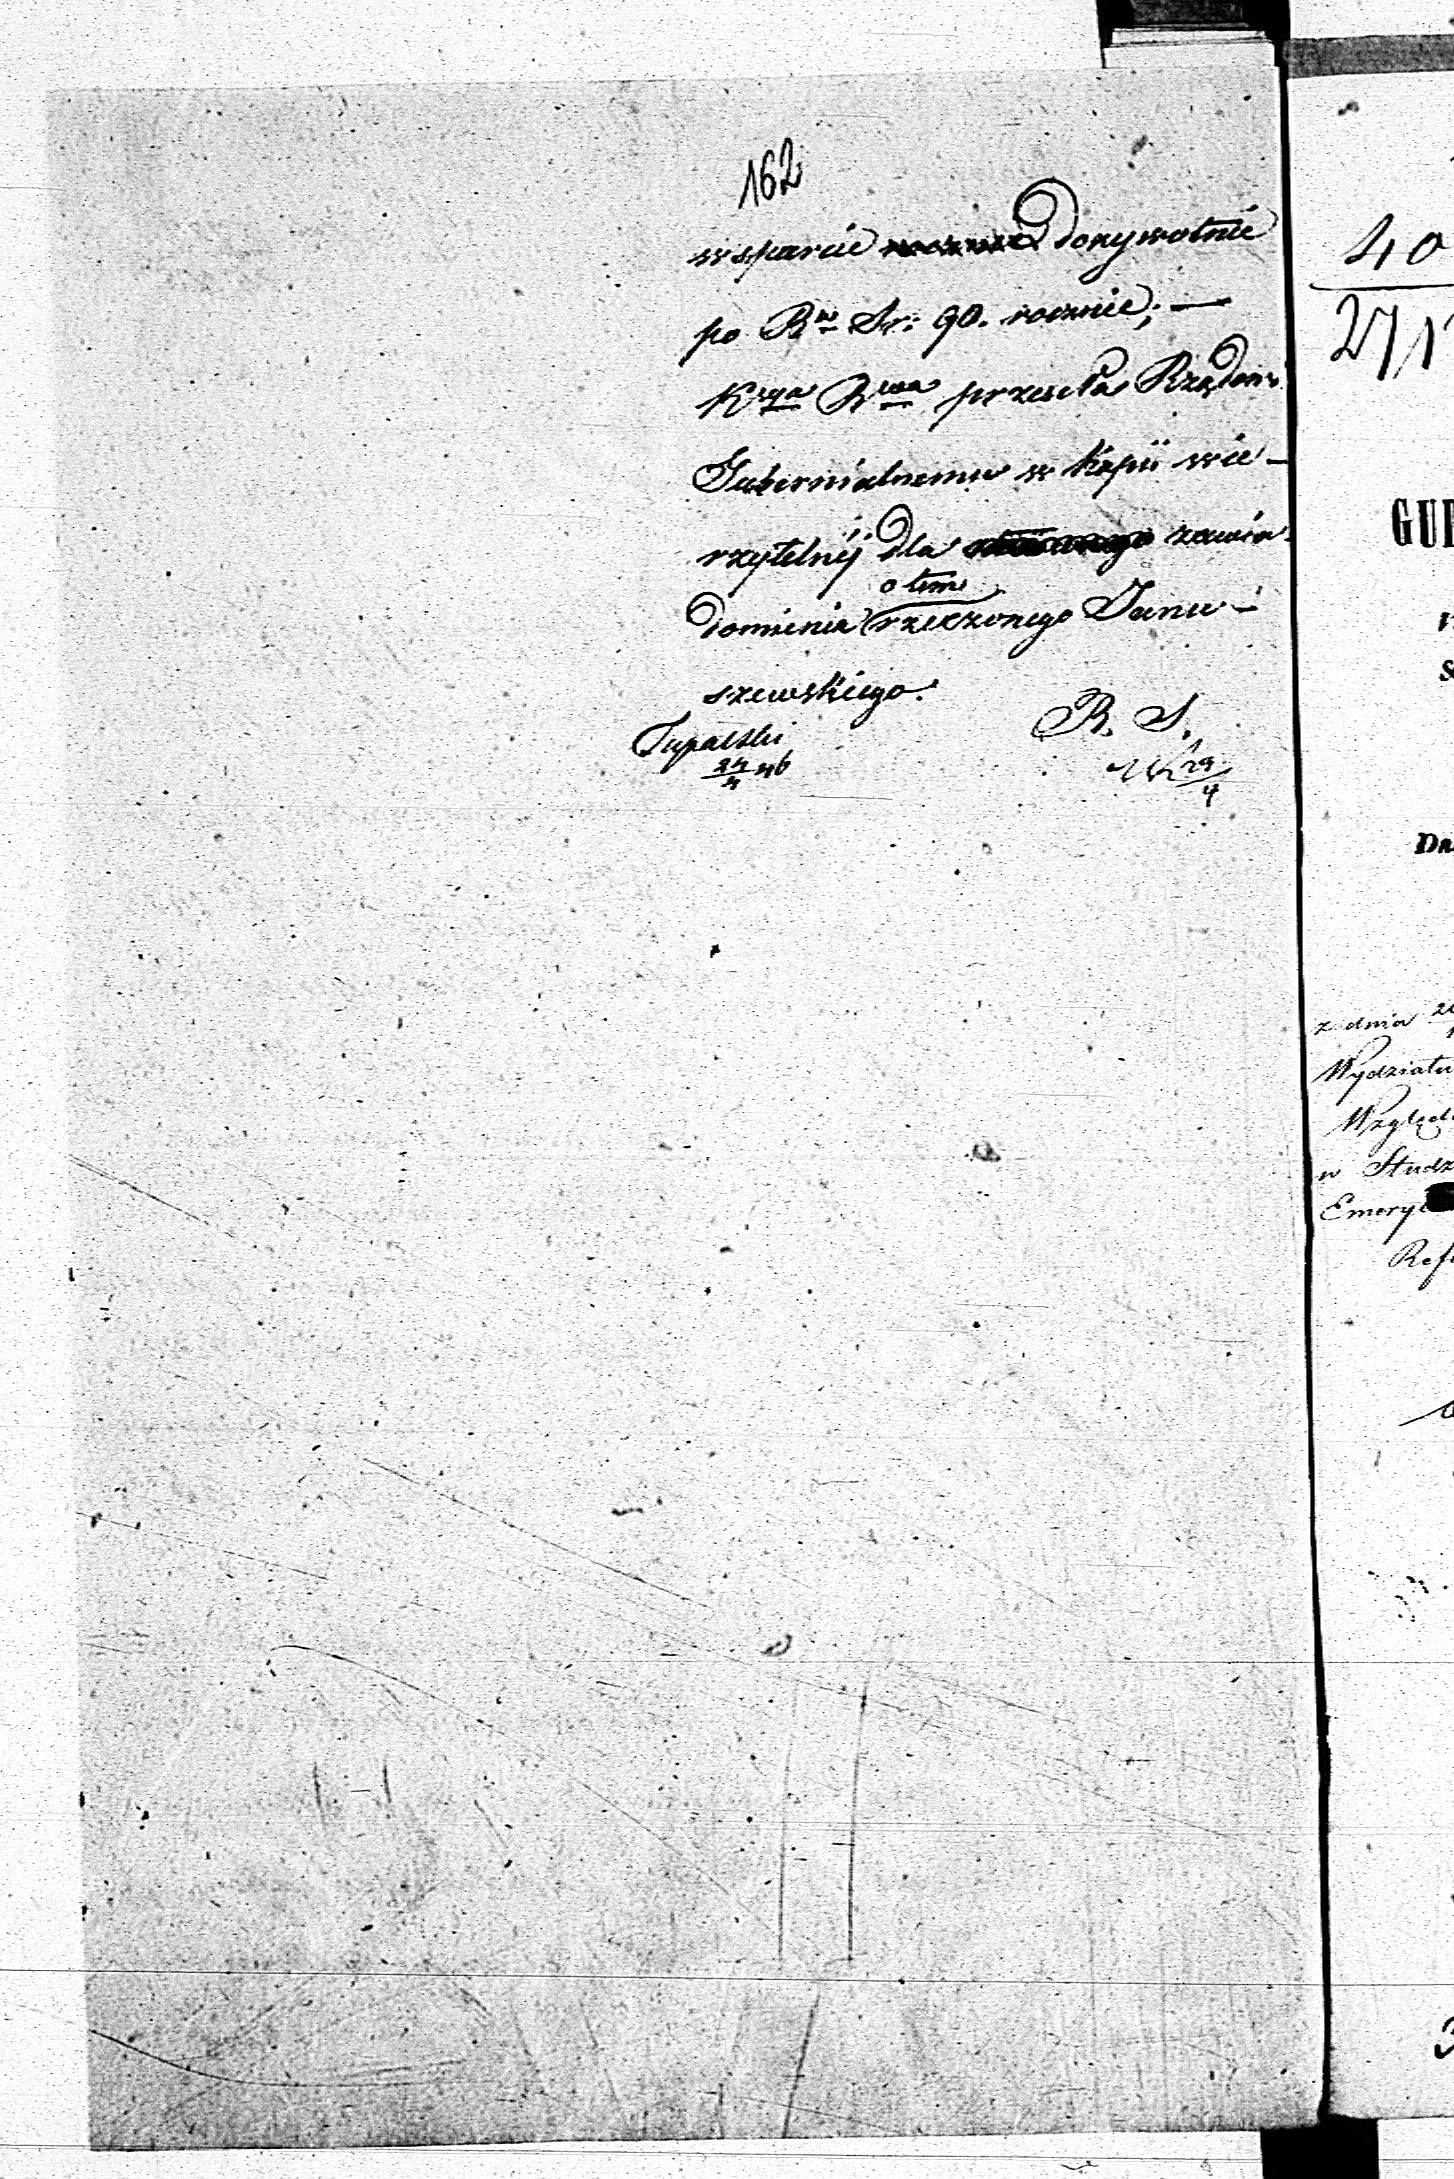 162
wsparcie dożywotnie
po Rs. Sr: 90. rocznie; —
Kssya Rwa przesyła Rządowi
Gubernialnemu w kopii wie-
rzytelnéj dla zawia-
o tem
domienia rzeczonego Janu-
szewskiego.
R. S.
24/4 46
29/4
40
271
GUB
Da
z dnia
Wydziału
Względ
w Studz
Emeryt